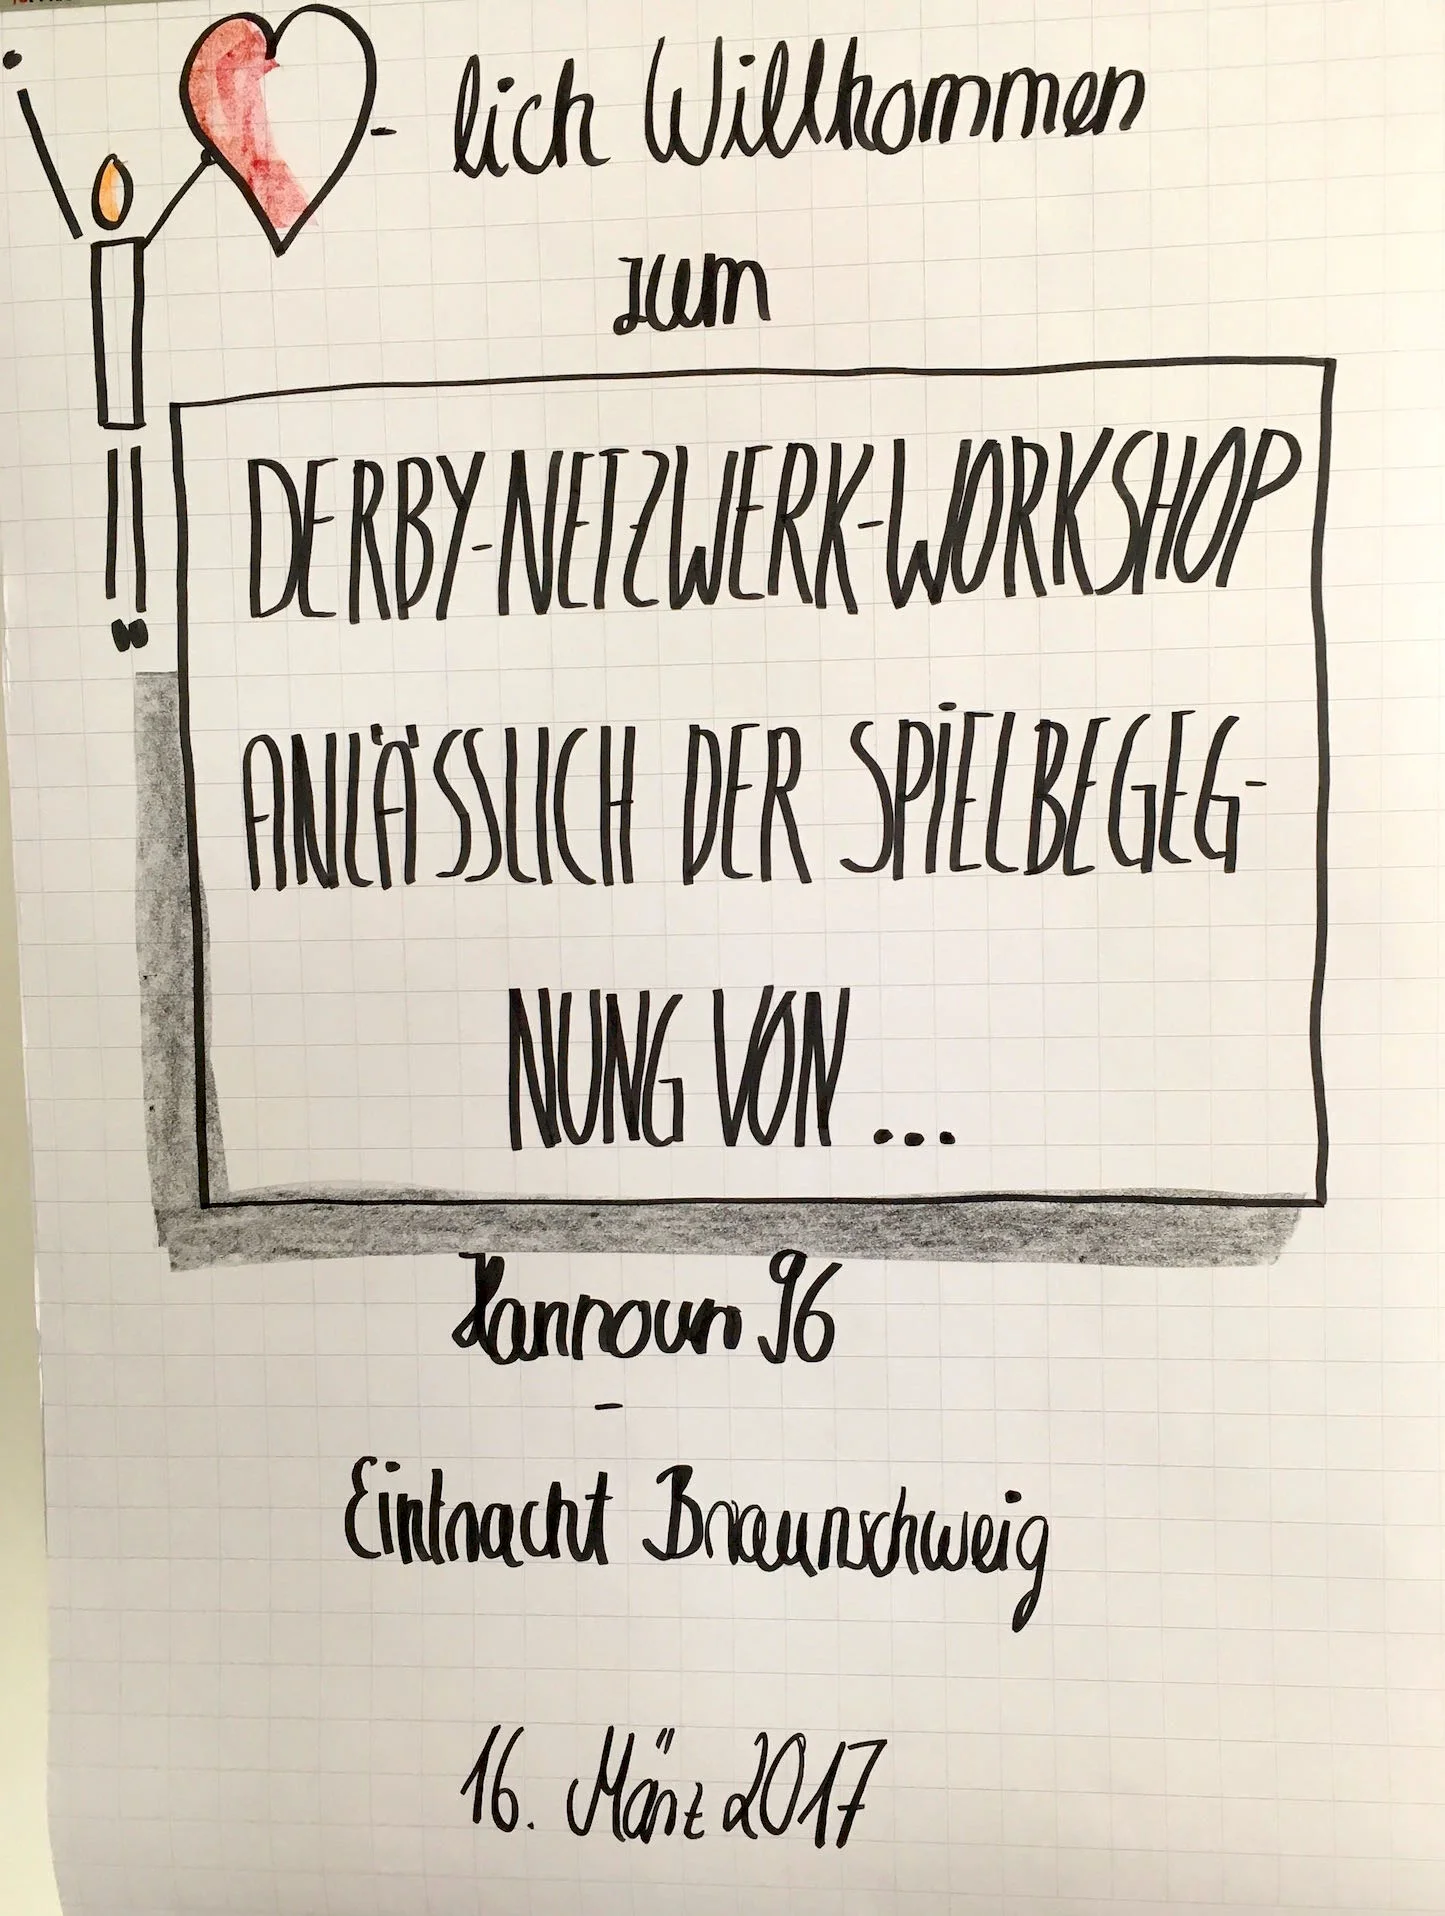 - lich Willkommen
zum
DERBY-NETZWERK-WORKSHOP
ANLÄSSLICH DER SPIELBEGEG-
NUNG VON ...
Hannover 96
-
Eintracht Braunschweig
16. März 2017